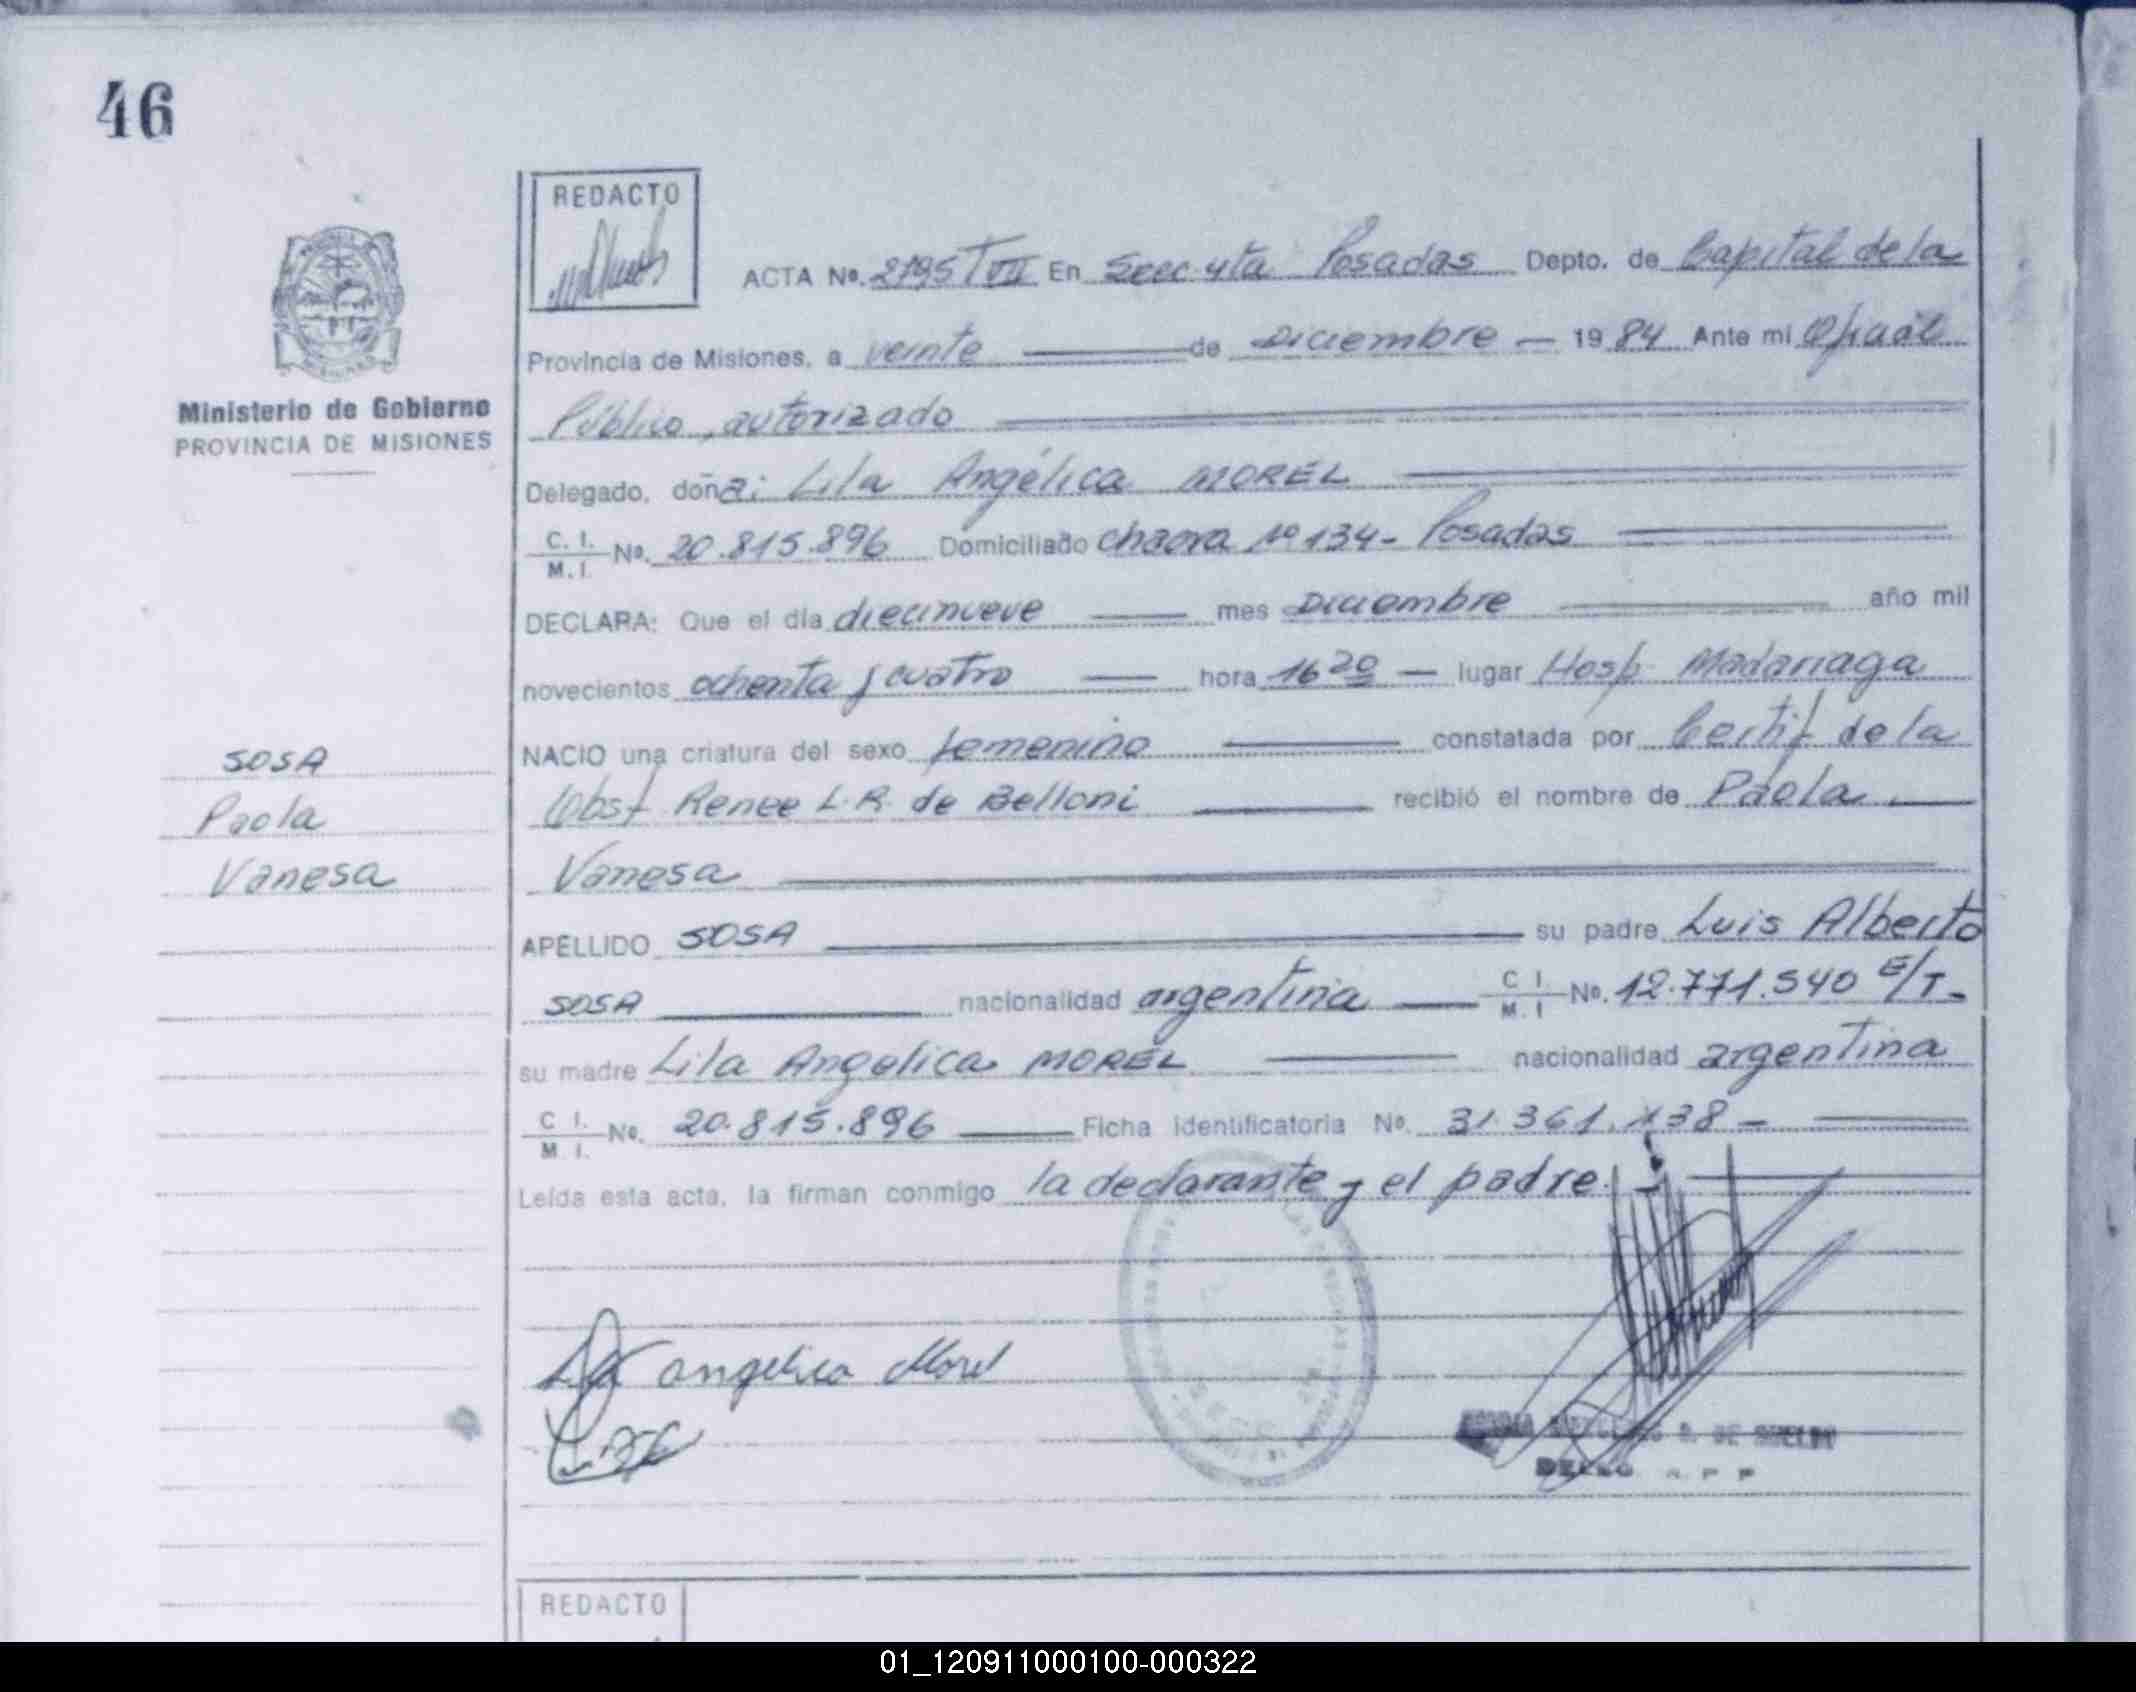 46
REDACTO
ACTA No. 2795 T VII En Secc. 4ta Posadas Depto. de Capital de la
Provincia de Misiones, a veinte de Diciembre 1984 Ante mi Oficial
Público, autorizado
Delegado, doña: Lila Angélica MOREL
C. I. M. I. No. 20.815.896 Domiciliado chacra Nº 134 - Posadas
DECLARA: Que el día diecinueve mes Diciembre año mil
novecientos ochenta y cuatro hora 16 20 lugar Hosp. Madariaga
NACIO una criatura del sexo femenino constatada por Certif. de la
Obst. Renee L. R. de Belloni recibió el nombre de Paola
Vanesa
APELLIDO SOSA su padre Luis Alberto
SOSA nacionalidad argentina C I M. I No. 12.771.540 E/T.
su madre Lila Angelica MOREL nacionalidad argentina
C I. M. I. No. 20.815.896 Ficha identificatoria No. 31.361.138 -
Leída esta acta, la firman conmigo la declarante y el padre.
angelica Morel
Ministerio de Gobierno
PROVINCIA DE MISIONES
SOSA
Paola
Vanesa
REDACTO
01_120911000100-000322